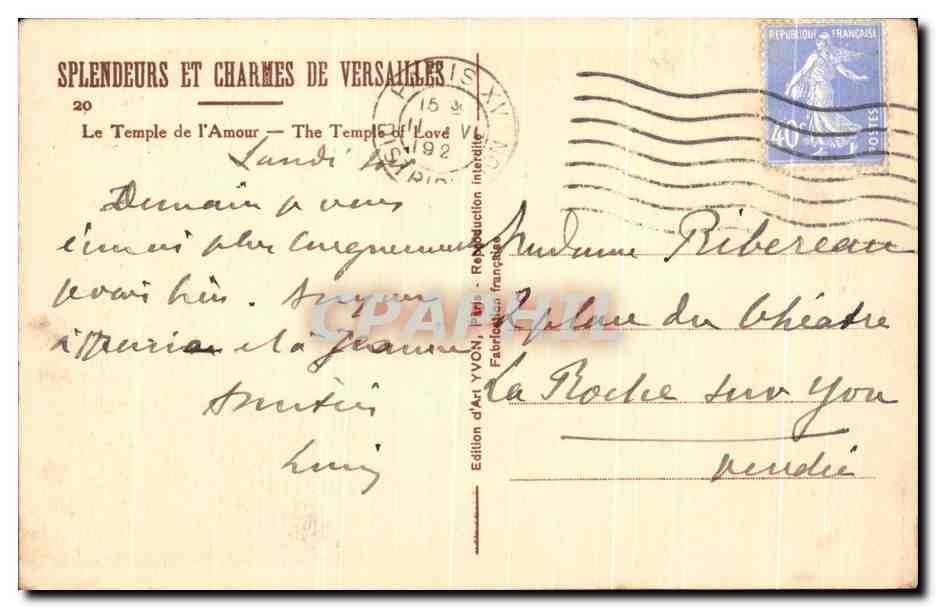 SPLENDEURS ET CHARMES DE VERSAILLES
20
Le Temple de l'Amour — The Temple of Love
Lundi
Demain je vous
plus longuement
je vais bien.
à Maria et à Jeanne
Amitiés
Louis
Edition d'Art YVON, Paris - Reproduction interdite
Fabrication française
PARIS XV
15
192
REPUBLIQUE FRANÇAISE
40c
POSTES
Madame Ribereau
2 place du théatre
La Roche sur Yon
Vendée
CPAPHIL